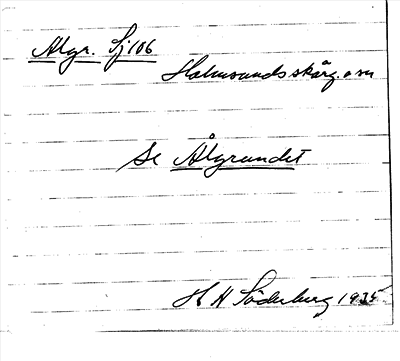 Algr. Sj 106
Holmsunds skärg.
Se Ålgrundet
H H Söderberg 1935